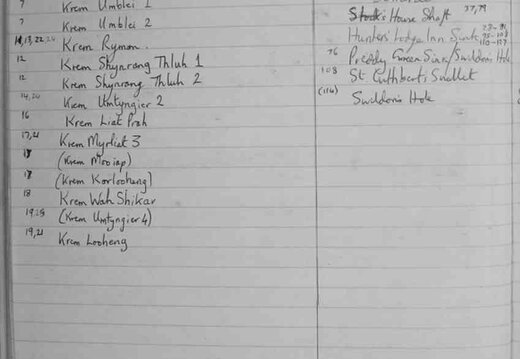 7 Krem Umblei 1
7 Krem Umblei 2
11,13,22,24 Krem Ryman.
12 Krem Shynrang Thluh 1
12 Krem Shynrang Thluh 2
14,24 Krem Umtyngier 2
16 Krem Liat Prah
17,21 Krem Myrliat 3
17 (Krem Mooiap)
17 (Krem Korlooheng)
18 Krem Wah Shikar
19,23 (Krem Umtyngier 4)
19,21 Krem Looheng
Stock's House Shaft 77,79
Hunters' Lodge Inn Sink
76 Priddy Green Sink/Swildons Hole
108 St. Cuthberts Swallet
(116) Swildons Hole